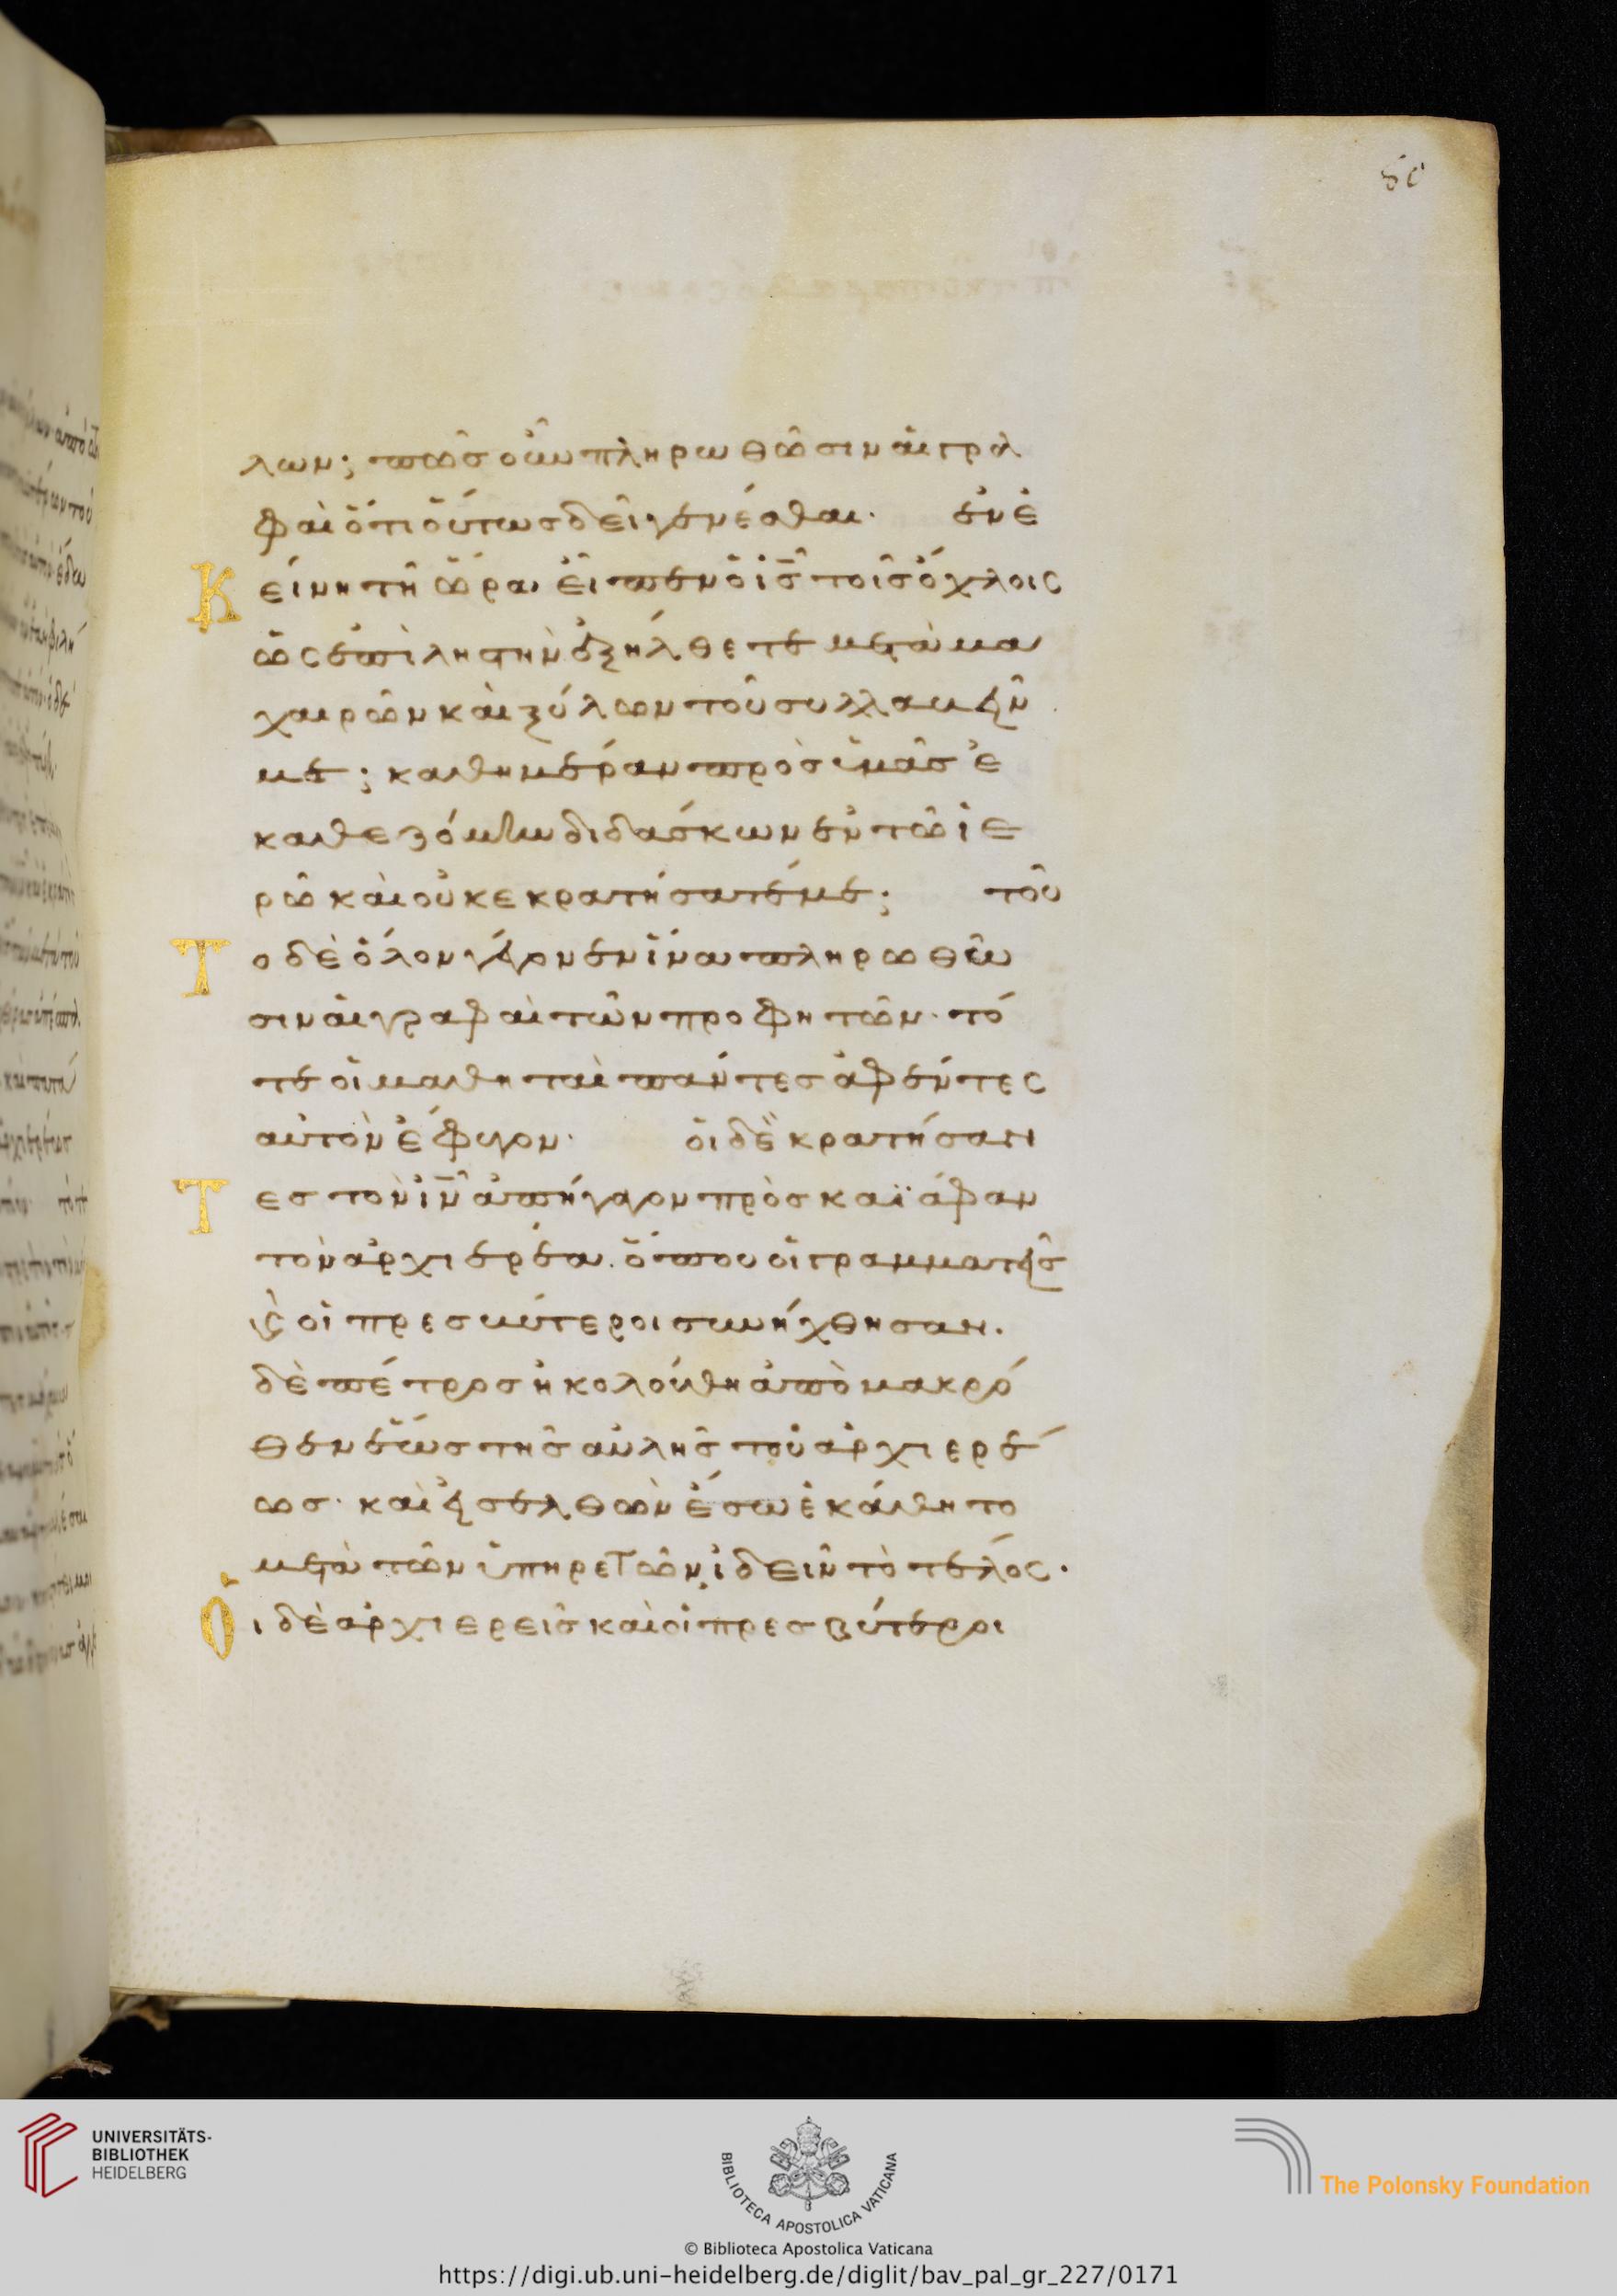 80
λων; πῶς οὖν πληρωθῶσιν αἱ γρα
φαὶ ὅτι οὕτως δεῖ γενέσθαι· ἐν ἐ
Κείνη τῆ ὥρα εἶπεν ὁ ις τοῖς ὄχλοις
ὡς ἐπὶ ληστὴν ἐξήλθετε μετὰ μα
χαιρῶν καὶ ξύλων τοῦ συλλαβεῖν
με; καθημέραν πρὸς ὑμᾶς ἐ
καθεζόμην διδάσκων ἐν τῶ ἱε
ρῶ καὶ οὐκ ἐκρατήσατέ με; τοῦ
Το δὲ ὅλον γέγονεν ἵνα πληρωθῶ
σιν αἱ γραφαὶ τῶν προφητῶν· τό
τε οἱ μαθηταὶ πάντες ἀφέντες
αὐτὸν ἔφυγον· οἱ δὲ κρατήσαν
Τες τὸν ιν ἀπήγαγον πρὸς καϊάφαν
τὸν ἀρχιερέα. ὅπου οἱ γραμματεῖς
καὶ οἱ πρεσβύτεροι συνήχθησαν.
δὲ πέτρος ἠκολούθη ἀπὸ μακρό
θεν ἕως τῆς αὐλῆς τοῦ ἀρχιερέ
ως· καὶ εἰσελθὼν ἔσω ἐκάθητο
μετὰ τῶν ὑπηρετῶν ἰδεῖν τὸ τέλος·
Οἱ δὲ ἀρχιερεῖς καὶ οἱ πρεσβύτεροι
UNIVERSITÄTS-
BIBLIOTHEK
HEIDELBERG
BIBLIOTECA APOSTOLICA VATICANA
The Polonsky Foundation
© Biblioteca Apostolica Vaticana
https://digi.ub.uni-heidelberg.de/diglit/bav_pal_gr_227/0171